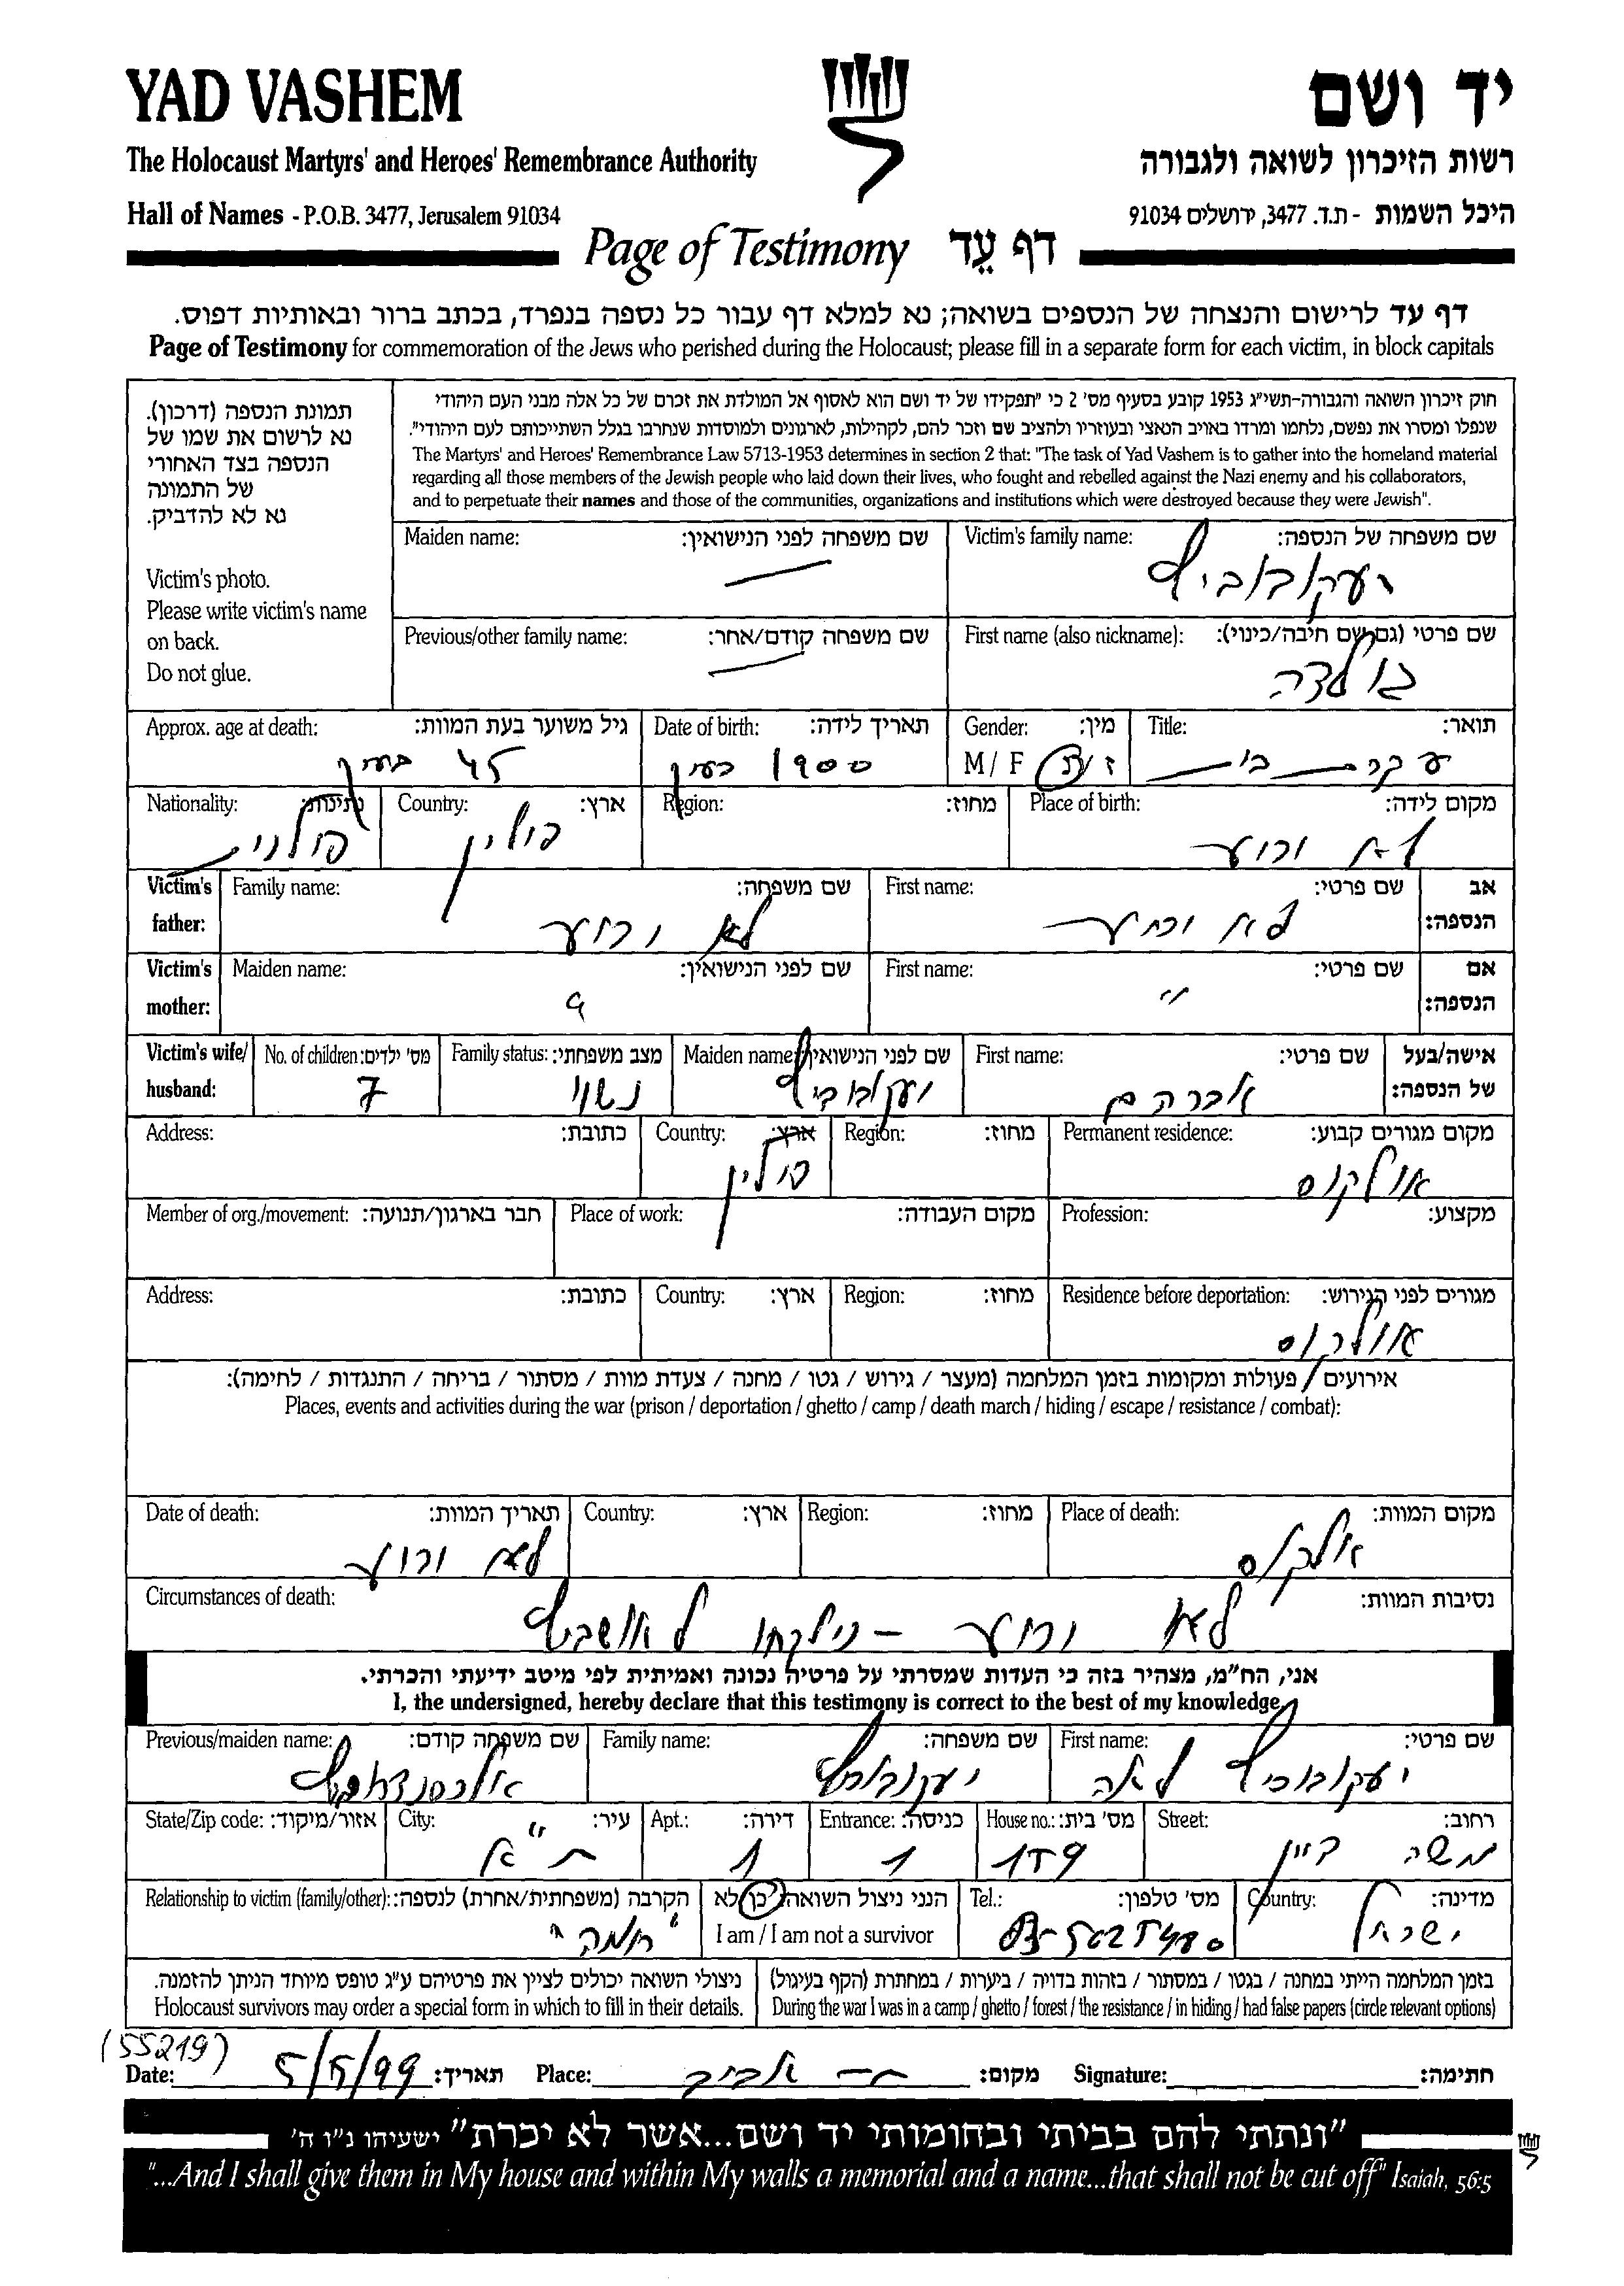 YAD VASHEM
יד ושם
The Holocaust Martyrs' and Heroes' Remembrance Authority
רשות הזיכרון לשואה ולגבורה
Hall of Names - P.O.B. 3477, Jerusalem 91034
היכל השמות - ת.ד. 3477, ירושלים 91034
Page of Testimony דף עֵד
דף עד לרישום והנצחה של הנספים בשואה; נא למלא דף עבור כל נספה בנפרד, בכתב ברור ובאותיות דפוס.
Page of Testimony for commemoration of the Jews who perished during the Holocaust; please fill in a separate form for each victim, in block capitals
תמונת הנספה (דרכון).
נא לרשום את שמו של
הנספה בצד האחורי
של התמונה
נא לא להדביק.
Victim's photo.
Please write victim's name
on back.
Do not glue.
חוק זיכרון השואה והגבורה-תשי"ג 1953 קובע בסעיף מס' 2 כי "תפקידו של יד ושם הוא לאסוף אל המולדת את זכרם של כל אלה מבני העם היהודי
שנפלו ומסרו את נפשם, נלחמו ומרדו באויב הנאצי ובעוזריו ולהציב שם וזכר להם, לקהילות, לארגונים ולמוסדות שנחרבו בגלל השתייכותם לעם היהודי".
The Martyrs' and Heroes' Remembrance Law 5713-1953 determines in section 2 that: "The task of Yad Vashem is to gather into the homeland material
regarding all those members of the Jewish people who laid down their lives, who fought and rebelled against the Nazi enemy and his collaborators,
and to perpetuate their names and those of the communities, organizations and institutions which were destroyed because they were Jewish".
Victim's family name: שם משפחה של הנספה:
יעקובוביץ
Maiden name: שם משפחה לפני הנישואין:
First name (also nickname): שם פרטי (גם שם חיבה/כינוי):
גולדה
Previous/other family name: שם משפחה קודם/אחר:
Title: תואר:
עקרת בית
Gender: מין:
M / F ז / נ
Date of birth: תאריך לידה:
1900 בערך
Approx. age at death: גיל משוער בעת המוות:
45 בערך
Place of birth: מקום לידה:
לא ידוע
Region: מחוז:
Country: ארץ:
פולין
Nationality: נתינות:
פולנית
Victim's father: אב הנספה:
First name: שם פרטי:
לא ידוע
Family name: שם משפחה:
לא ידוע
Victim's mother: אם הנספה:
First name: שם פרטי:
"
Maiden name: שם לפני הנישואין:
Victim's wife/ husband: אישה/בעל של הנספה:
First name: שם פרטי:
אברהם
Maiden name: שם לפני הנישואין
יעקובוביץ
Family status: מצב משפחתי:
נשוי
No. of children: מס' ילדים:
7
Permanent residence: מקום מגורים קבוע:
אולקוס
Region: מחוז:
Country: ארץ:
פולין
Address: כתובת:
Profession: מקצוע:
Place of work: מקום העבודה:
Member of org./movement: חבר בארגון/תנועה:
Residence before deportation: מגורים לפני הגירוש:
אולקוס
Region: מחוז:
Country: ארץ:
Address: כתובת:
אירועים / פעולות ומקומות בזמן המלחמה (מעצר / גירוש / גטו / מחנה / צעדת מוות / מסתור / בריחה / התנגדות / לחימה):
Places, events and activities during the war (prison / deportation / ghetto / camp / death march / hiding / escape / resistance / combat):
Place of death: מקום המוות:
אלקוס
Region: מחוז:
Country: ארץ:
Date of death: תאריך המוות:
לא ידוע
Circumstances of death: נסיבות המוות:
לא ידוע - נילקחו לאושביץ
אני, הח"מ, מצהיר בזה כי העדות שמסרתי על פרטיה נכונה ואמיתית לפי מיטב ידיעתי והכרתי.
I, the undersigned, hereby declare that this testimony is correct to the best of my knowledge
First name: שם פרטי:
יעקובוביץ לאה
Family name: שם משפחה:
יעקובוביץ
Previous/maiden name: שם משפחה קודם:
Street: רחוב:
משה דיין
House no.: מס' בית:
159
Entrance: כניסה:
1
Apt.: דירה:
1
City: עיר:
ת"א
State/Zip code: אזור/מיקוד:
Country: מדינה:
ישראל
Tel.: מס' טלפון:
הנני ניצול השואה: כן / לא
I am / I am not a survivor
Relationship to victim (family/other): הקרבה (משפחתית/אחרת) לנספה:
בזמן המלחמה הייתי במחנה / בגטו / במסתור / בזהות בדויה / ביערות / במחתרת (הקף בעיגול)
During the war I was in a camp / ghetto / forest / the resistance / in hiding / had false papers (circle relevant options)
ניצולי השואה יכולים לציין את פרטיהם ע"ג טופס מיוחד הניתן להזמנה.
Holocaust survivors may order a special form in which to fill in their details.
(55219)
Date: 5/5/99 תאריך: Place: תל אביב מקום: Signature: חתימה:
"ונתתי להם בביתי ובחומותי יד ושם...אשר לא יכרת" ישעיהו נ"ו ה'
"...And I shall give them in My house and within My walls a memorial and a name...that shall not be cut off" Isaiah, 56:5